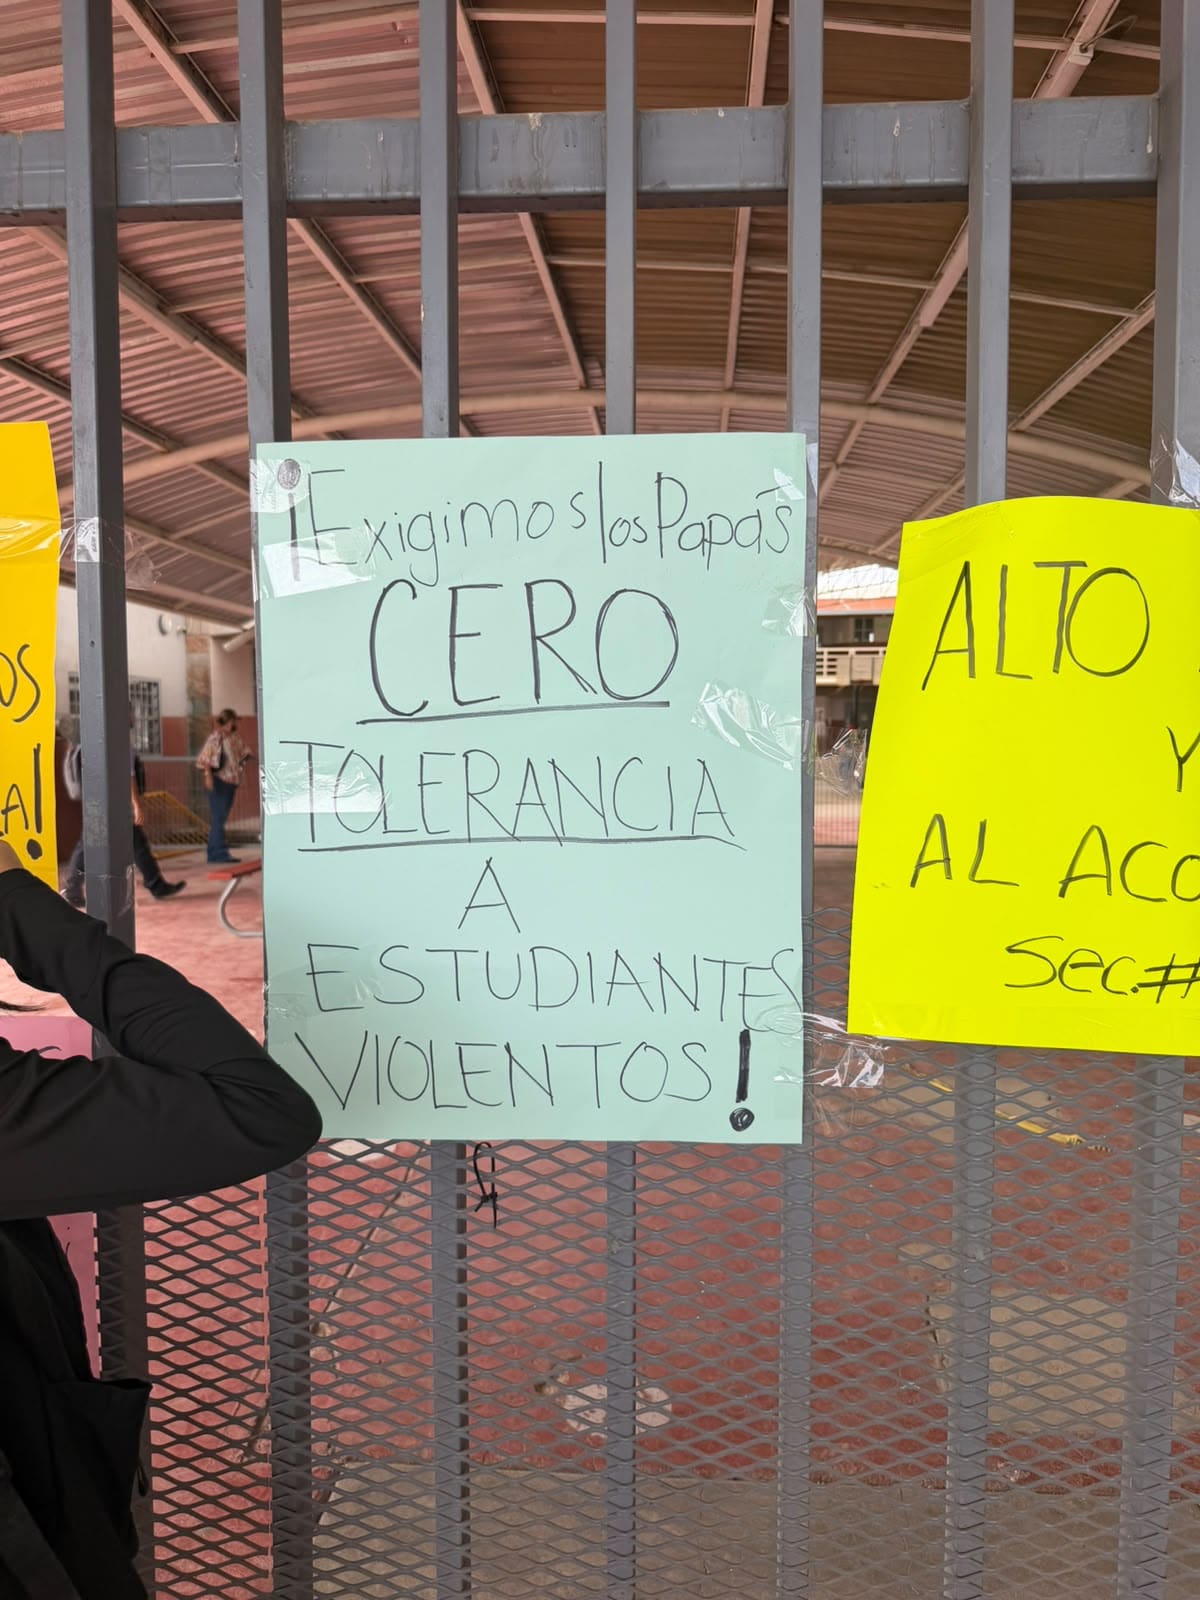 OS
A!
¡Exigimos los Papás
CERO
TOLERANCIA
A
ESTUDIANTES
VIOLENTOS!
ALTO
Y
AL ACO
Sec.#